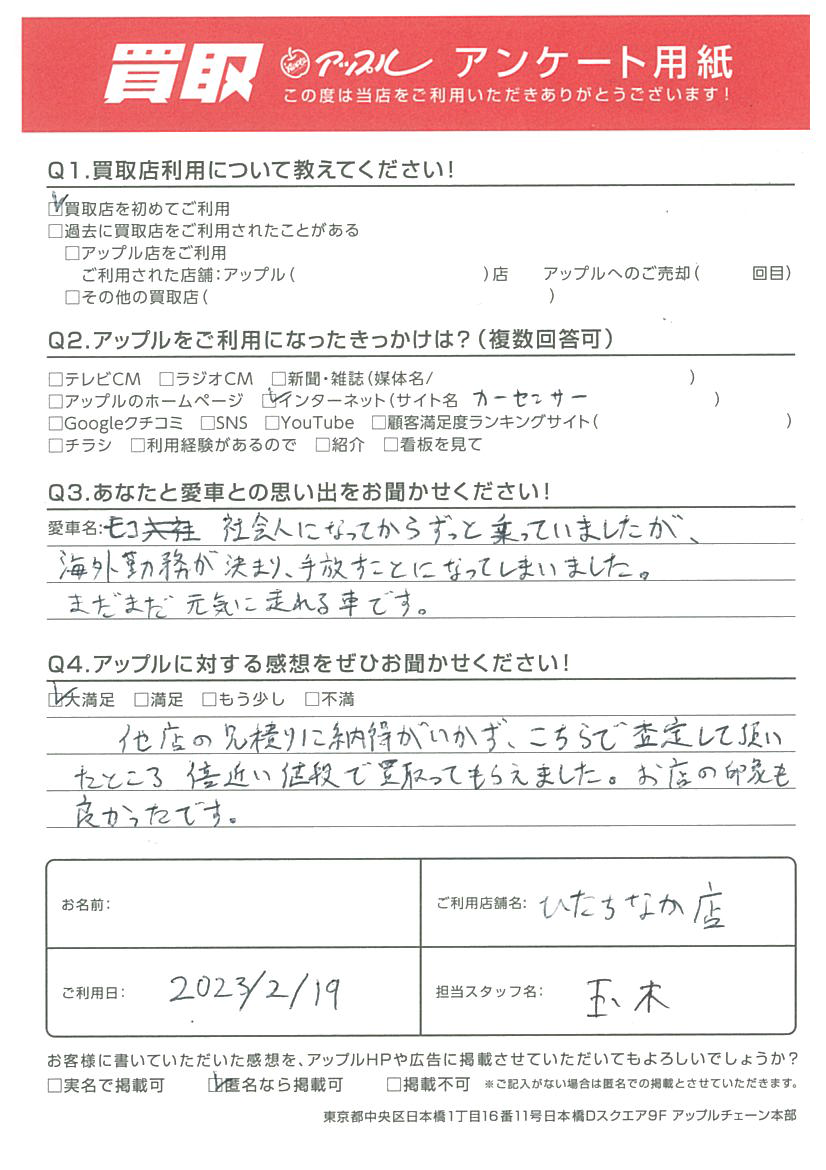 買取 Apple アップル アンケート用紙
この度は当店をご利用いただきありがとうございます！
Q1.買取店利用について教えてください！
☑買取店を初めてご利用
□過去に買取店をご利用されたことがある
□アップル店をご利用
ご利用された店舗：アップル（ ）店 アップルへのご売却（ 回目）
□その他の買取店（ ）
Q2.アップルをご利用になったきっかけは？（複数回答可）
□テレビCM □ラジオCM □新聞・雑誌（媒体名/ ）
□アップルのホームページ ☑インターネット（サイト名 カーセンサー ）
□Googleクチコミ □SNS □YouTube □顧客満足度ランキングサイト（ ）
□チラシ □利用経験があるので □紹介 □看板を見て
Q3.あなたと愛車との思い出をお聞かせください！
愛車名：モコ 社会人になってからずっと乗っていましたが、
海外勤務が決まり、手放すことになってしまいました。
まだまだ元気に走れる車です。
Q4.アップルに対する感想をぜひお聞かせください！
☑大満足 □満足 □もう少し □不満
他店の見積りに納得がいかず、こちらで査定して頂い
たところ倍近い値段で買取ってもらえました。お店の印象も
良かったです。
お名前： ご利用店舗名：ひたちなか店
ご利用日： 2023/2/19 担当スタッフ名： 玉木
お客様に書いていただいた感想を、アップルHPや広告に掲載させていただいてもよろしいでしょうか？
□実名で掲載可 ☑匿名なら掲載可 □掲載不可 ※ご記入がない場合は匿名での掲載とさせていただきます。
東京都中央区日本橋1丁目16番11号日本橋Dスクエア9F アップルチェーン本部